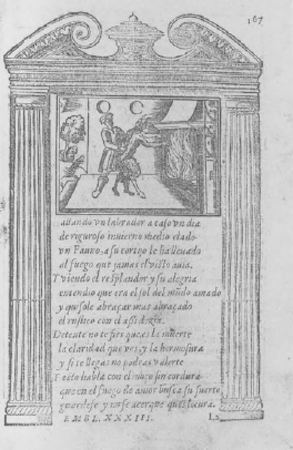 167
Z O C
allando vn labrador a caso vn dia
de riguroso inuierno medio elado
vn Fauno, a su cortijo le ha lleuado
al fuego que jamas el visto auia.
Y viendo el resplandor y su alegria
entendio que era el sol del mūdo amado
y quisole abraçar mas abraçado
el rustico con el assi dezia.
Detente no te des que es la muerte
la claridad que ves, y la hermosura
y si te llegas no podras valerte
Y esto habla con el moço sin cordura
que en el fuego de amor busca su suerte
guardese y no se acerque que es locura.
EMBL. XXXIII.